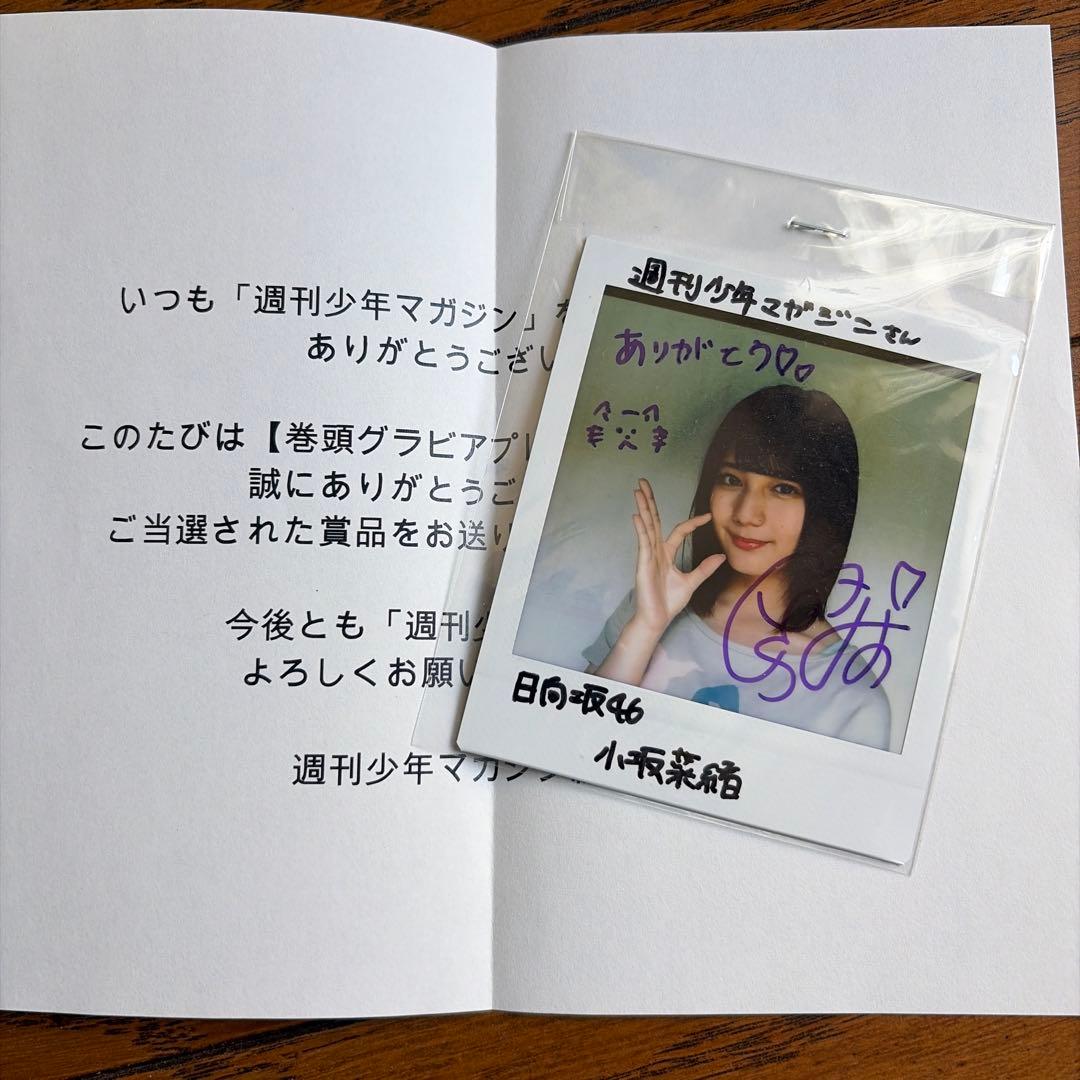 いつも「週刊少年マガジン」を
ありがとうござい
このたびは【巻頭グラビアプレ
誠にありがとうご
ご当選された賞品をお送り
今後とも「週刊少
よろしくお願い
週刊少年マガジン
週刊少年マガジンさん
ありがとう♡。
日向坂46
小坂菜緒